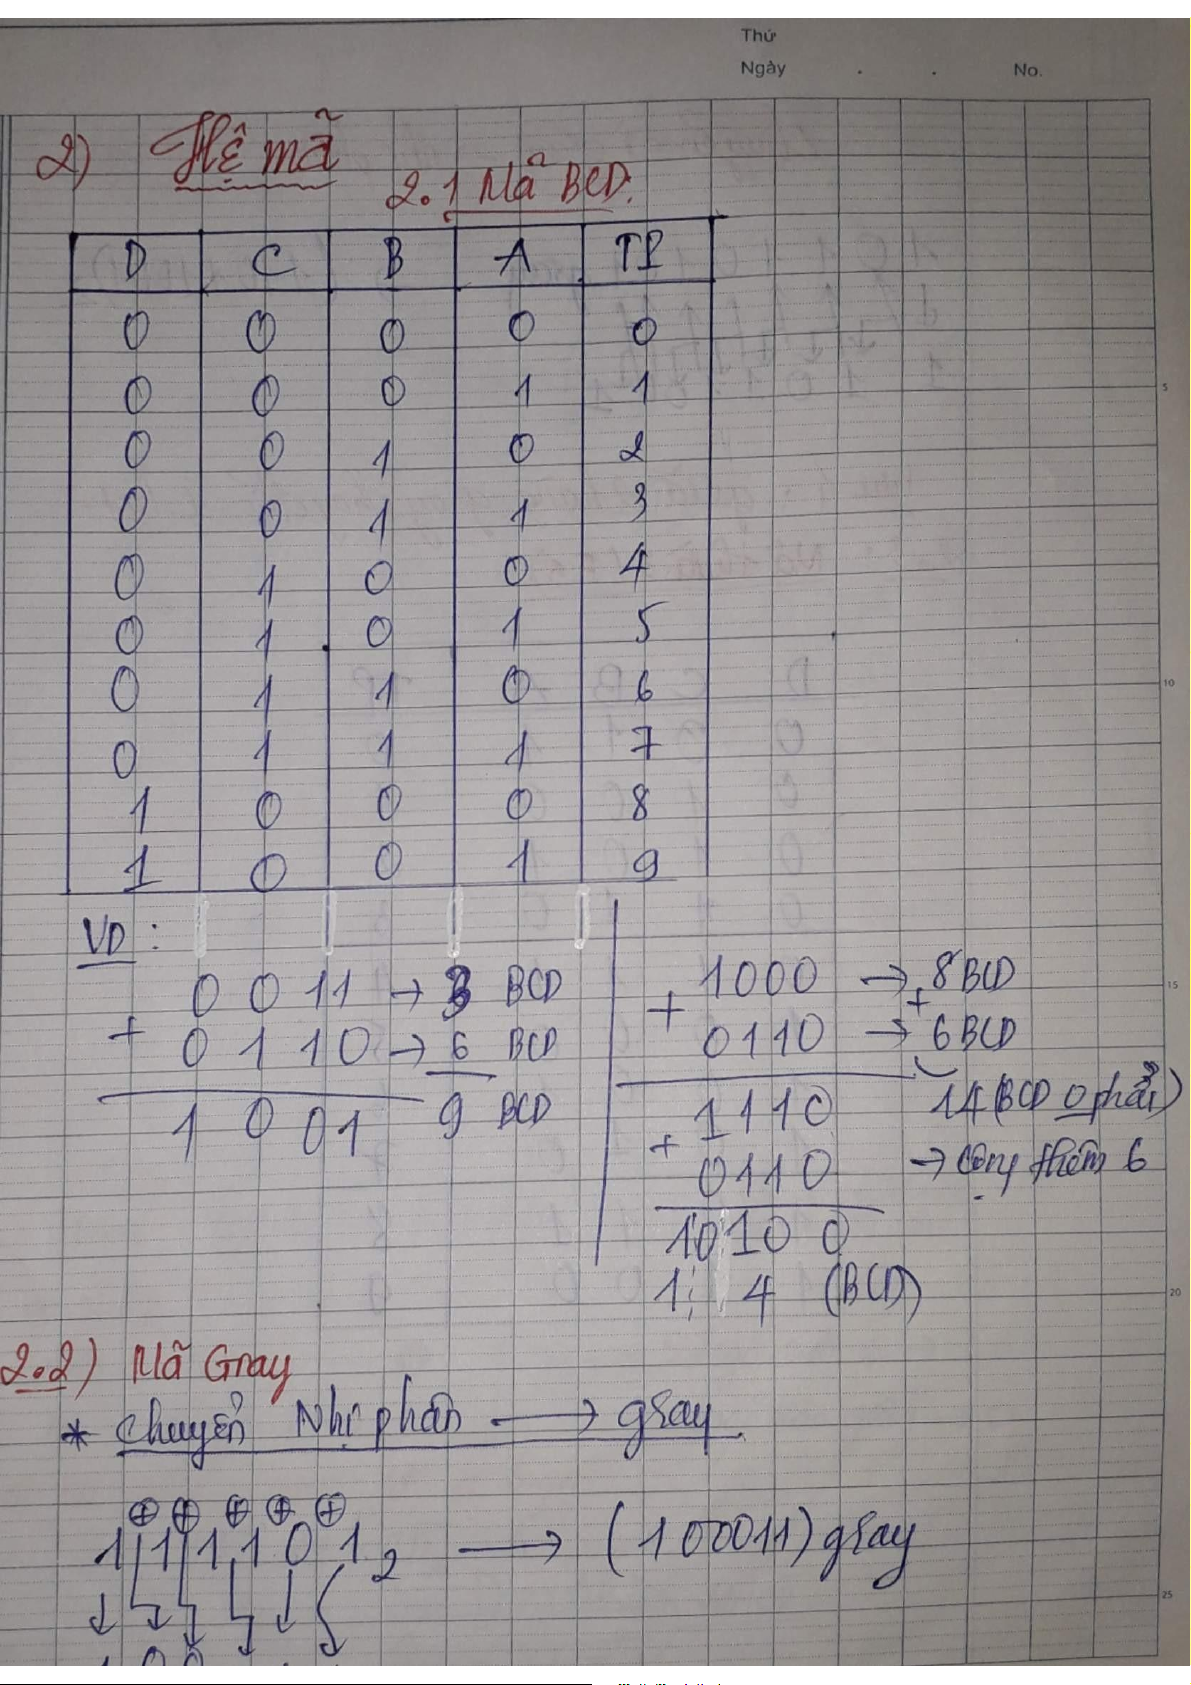 Thứ
Ngày . . No.
2) Hệ mã
2.1 Mã BCD.
D C B A TP
0 0 0 0 0
0 0 0 1 1
0 0 1 0 2
0 0 1 1 3
0 1 0 0 4
0 1 0 1 5
0 1 1 0 6
0 1 1 1 7
1 0 0 0 8
1 0 0 1 9
VD :
0 0 1 1 → 3 BCD
+ 0 1 1 0 → 6 BCD
1 0 0 1 9 BCD
1000 → 8 BCD
+ 0110 → + 6 BCD
1110 14 (BCD 0 phải)
+ 0110 → cộng thêm 6
10100
1 4 (BCD)
2.2) Mã Gray
* Chuyển Nhị phân → gray
⊕ ⊕ ⊕ ⊕ ⊕
1 1 1 1 0 1 2 → (100011) gray
5
10
15
20
25